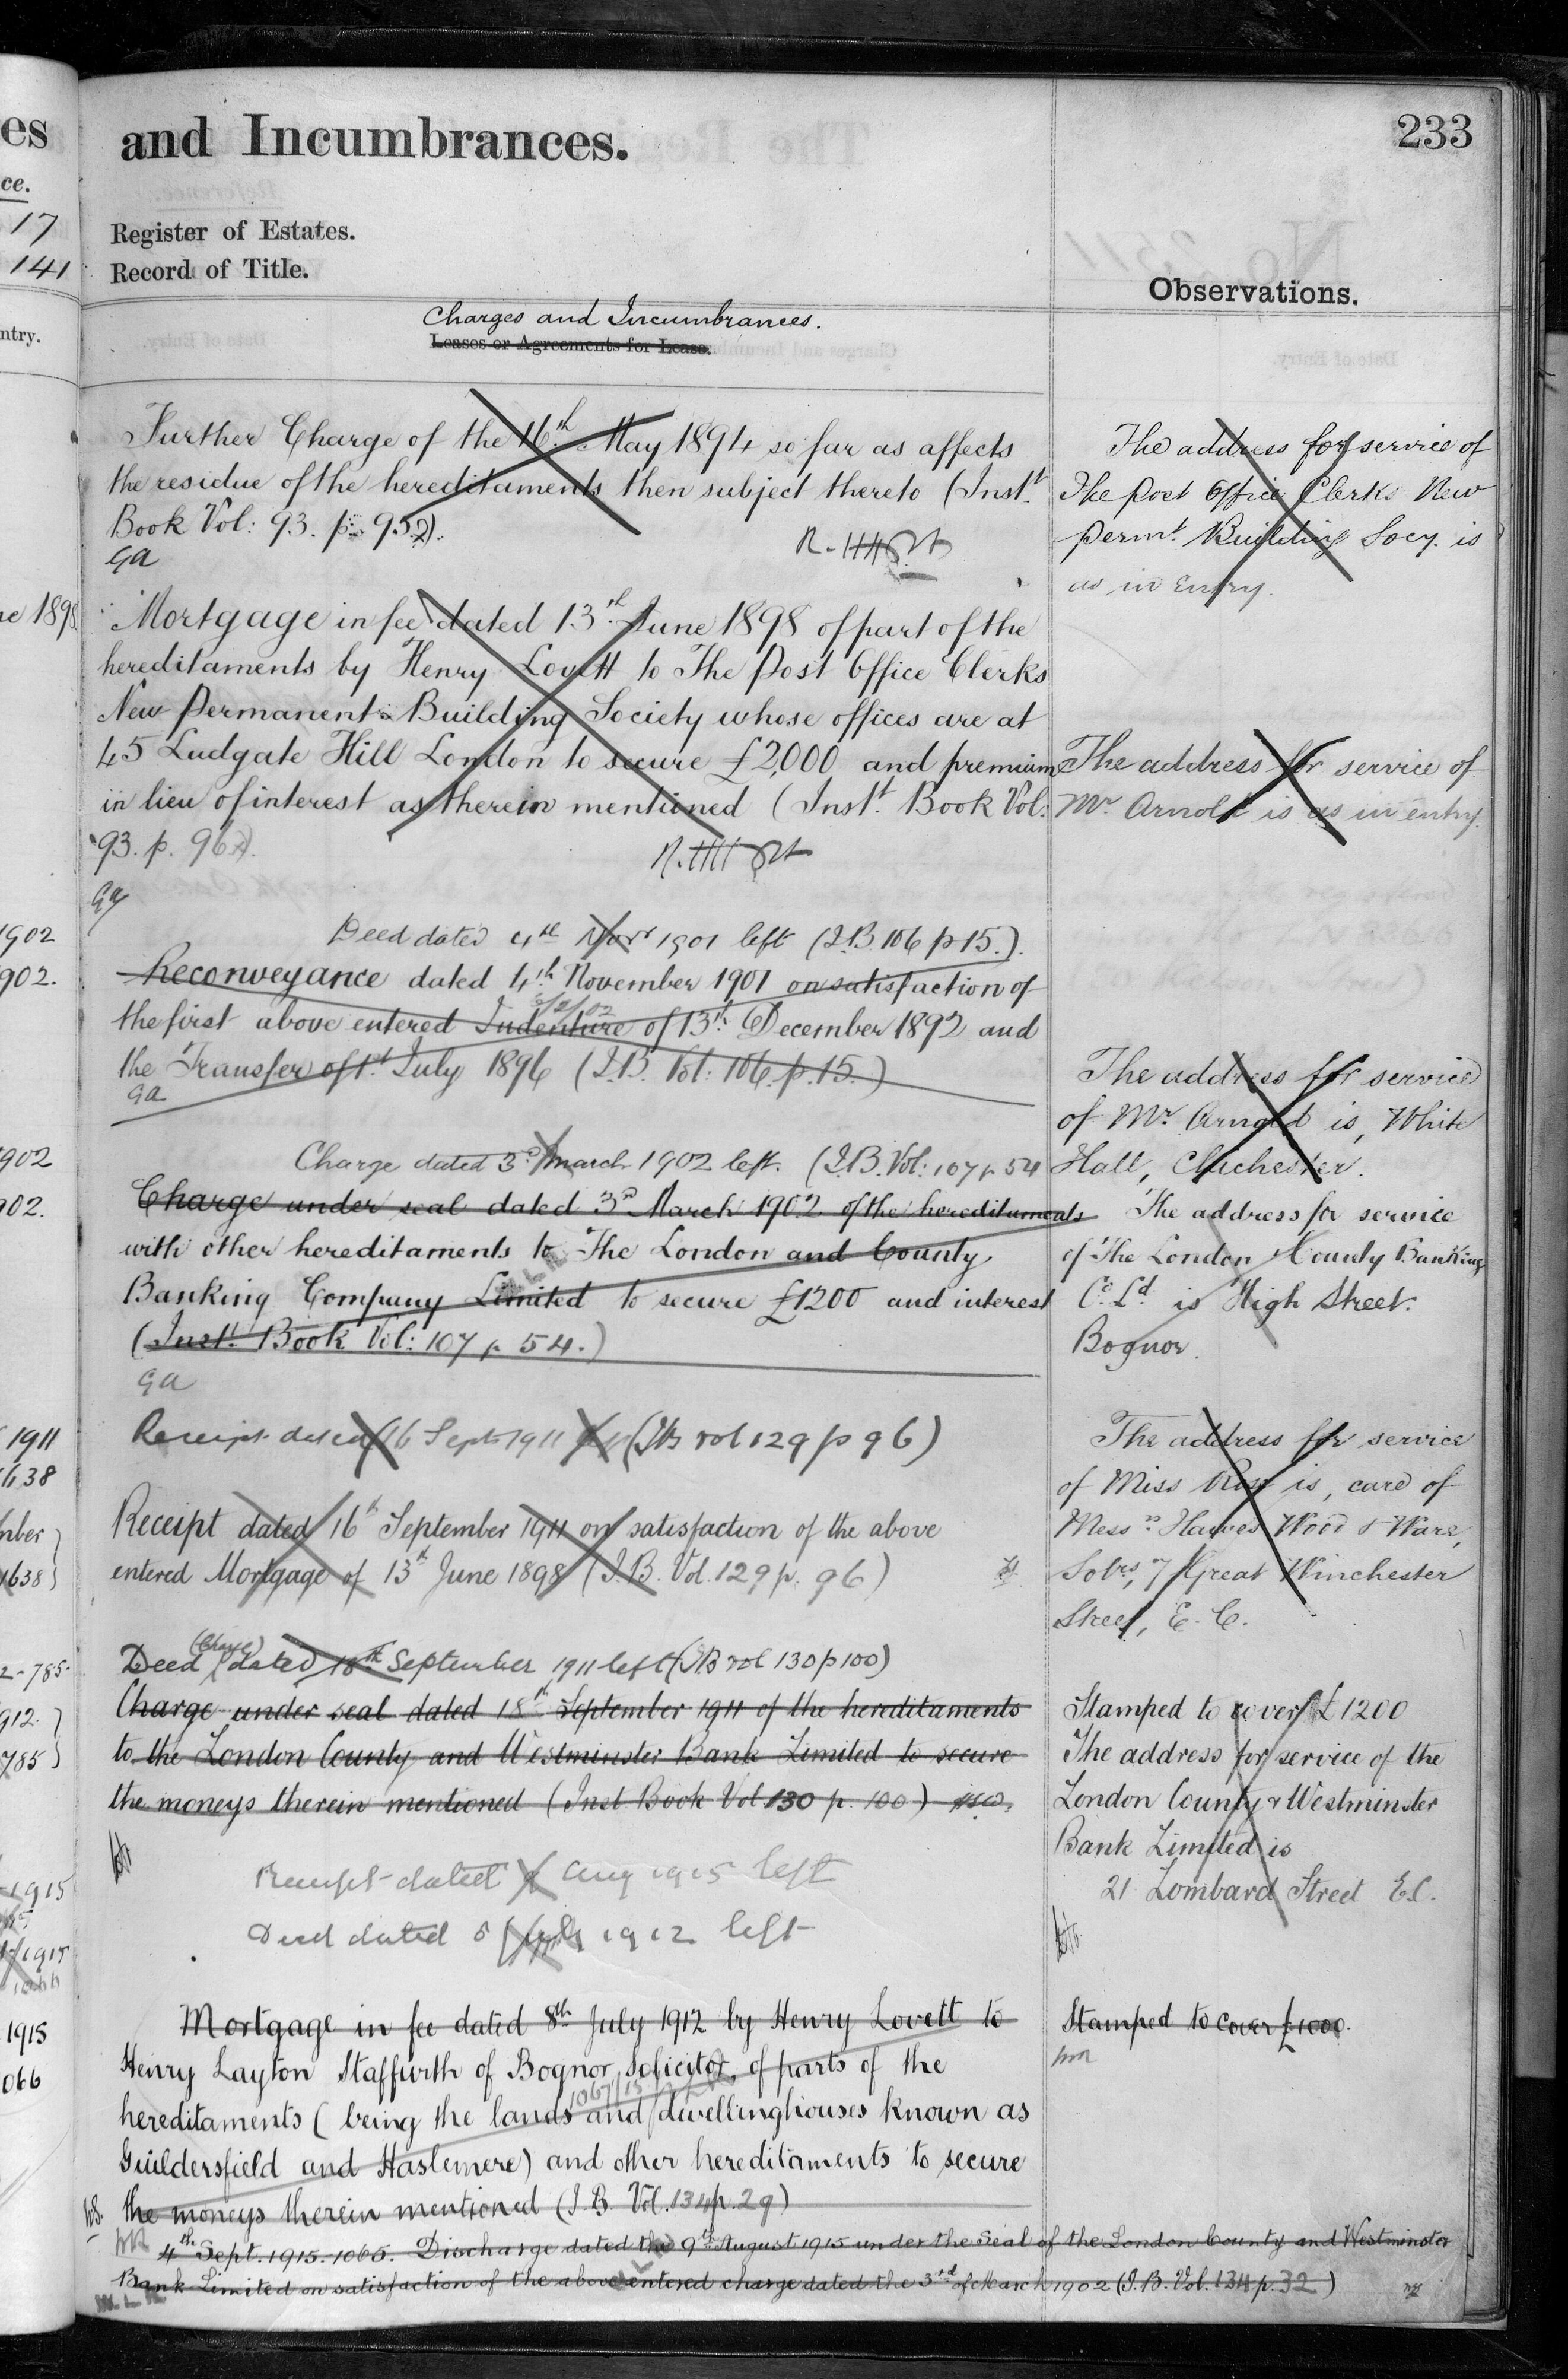 es
and Incumbrances.
233
ce.
17
141
Register of Estates.
Record of Title.
Observations.
ntry.
Charges and Incumbrances.
Leases or Agreements for Lease.
Further Charge of the 16th May 1894 so far as affects
the residue of the hereditaments then subject thereto (Instt
Book Vol: 93. p. 95
GA
The address for service of
The Post Office Clerks New
Permt Building Socy. is
as in Entry.
ne 1898
Mortgage in fee dated 13th June 1898 of part of the
hereditaments by Henry Lovett to The Post Office Clerks
New Permanent Building Society whose offices are at
45 Ludgate Hill London to secure £2,000 and premium
in lieu of interest as therein mentioned (Instt Book Vol:
93. p. 96
The address for service of
Mr Arnold is as in entry.
1902
902.
Deed dated 4th Novr 1901 left (I.B. 106 p 15.)
Reconveyance dated 4th November 1901 on satisfaction of
the first above entered Indenture of 13th December 1892 and
the Transfer of 1st July 1896 (I.B. Vol: 106. p. 15.)
GA
The address for service
of Mr Arnold is, White
Hall, Chichester.
902
902.
Charge dated 3rd March 1902 left. (I.B. Vol: 107 p 54
Charge under seal dated 3rd March 1902 of the hereditaments
with other hereditaments to The London and County
Banking Company Limited to secure £1200 and interest
(Instt Book Vol: 107 p. 54.)
GA
The address for service
of The London & County Banking
Co. Ld. is High Street.
Bognor.
1911
1638
Receipt dated 16 Sept 1911 (IB vol 129 p 96)
mber
1638
Receipt dated 16th September 1911 on satisfaction of the above
entered Mortgage of 13th June 1898 (I.B. Vol. 129 p. 96)
The address for service
of Miss is, care of
Messrs Hawes Wood & Ware,
Solrs, 7 Great Winchester
Street, E.C.
2-785
912.
785
Deed (Charge) dated 18th September 1911 left (IB vol 130 p 100)
Charge under seal dated 18th September 1911 of the hereditaments
to the London County and Westminster Bank Limited to secure
the moneys therein mentioned (Inst. Book Vol 130 p. 100)
Stamped to cover £1200
The address for service of the
London County & Westminster
Bank Limited is
21 Lombard Street E.C.
1915
1915
Receipt dated 9 Aug 1915 left
Deed dated 8 July 1912 left
1915
066
Mortgage in fee dated 8th July 1912 by Henry Lovett to
Henry Layton Staffurth of Bognor, Solicitor, of parts of the
hereditaments (being the lands and dwellinghouses known as
Guildersfield and Haslemere) and other hereditaments to secure
the moneys therein mentioned (I.B. Vol. 134 p. 29)
Stamped to cover £1000.
4th Sept. 1915. 1065. Discharge dated the 9th August 1915 under the Seal of the London County and Westminster
Bank Limited on satisfaction of the above entered charge dated the 3rd of March 1902 (I.B. Vol. 134 p. 32)